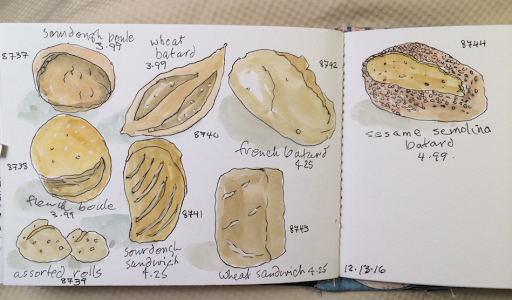 8737
sourdough boule
3.99
wheat
batard
3.99
8742
8740
french batard
4.25
8738
french boule
3.99
8741
sourdough
sandwich
4.25
8743
wheat sandwich 4.25
assorted rolls
8739
8744
sesame semolina
batard
4.99.
12.13.16